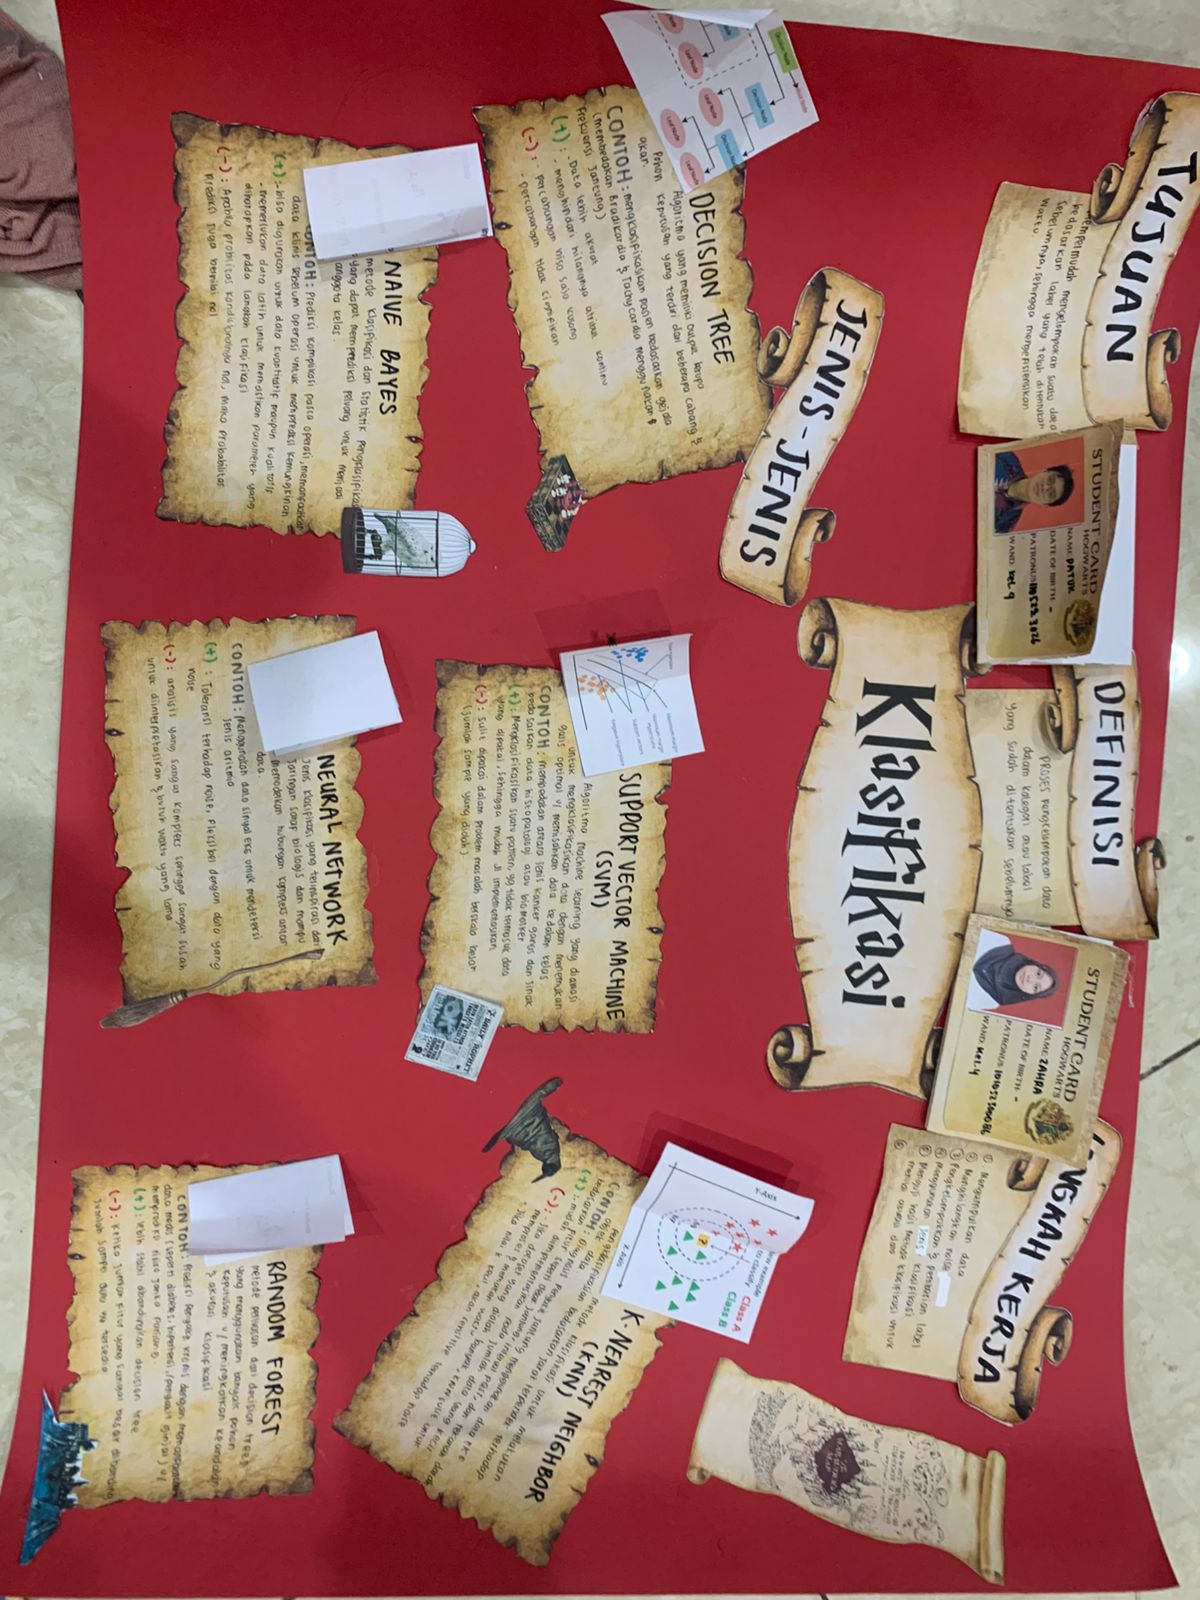 TUJUAN
Mempermudah mengelompokan suatu data
bedasarkan label yang telah ditentukan
sebelumnya, sehingga mengefisiensikan
waktu.
STUDENT CARD
HOGWARTS
NAME: DATUK
DATE OF BIRTH: -
PATRONUS:
WAND: Kel. 9
DEFINISI
PROSES Pengkelompokan data
dalam kategori atau label
yang sudah ditentukan sebelumnya
STUDENT CARD
HOGWARTS
NAME: ZAHRA
DATE OF BIRTH: -
PATRONUS:
WAND: Kel. 4
LANGKAH KERJA
① Mengumpulkan data
② Menghilangkan noise
③ Pengkelompokkan & pemberian label
④ Menggunakan jenis klasifikasi
⑤ Menguji hasil metode klasifikasi untuk
menilai akurasi data
⑥
Klasifikasi
THE MARAUDER'S MAP
JENIS-JENIS
Decision Node
Root Node
Decision Node
Decision Node
Leaf Node
Leaf Node
Leaf Node
Leaf Node
DECISION TREE
Algoritma yang memiliki output berupa
Pohon keputusan yang terdiri dari beberapa cabang &
akar.
CONTOH: mengklasifikasikan pasien bedasarkan gejala
(membedakan Bradikardia & Tachycardia menggunakan
frekuensi jantung)
(+): - Data lebih akurat
- menghindari hilangnya atribut kontinu
(-): - Percabangan bisa saja kosong
- percabangan tidak signifikan
Maximum margin
Maximum margin
Hyperplane
Support vectors
Negative Hyperplane
SUPPORT VECTOR MACHINE
(SVM)
Algoritma machine learning yang diawasi
untuk mengklasifikasikan data dengan menemukan
garis optimal u/ memisahkan data kedalam kelas.
CONTOH: membedakan antara jenis kanker ganas dan jinak
bedasarkan data histopatologi atau biomarker
(+): Mengklasifikasikan suatu pattern, yg tidak termasuk data
yang dipakai, sehingga mudah di implementasikan
(-): Sulit dipakai dalam problem masalah berskala besar
(jumlah sample yang diolah)
DAILY PROPHET
Y-Axis
New example
to classify
Class A
Class B
?
X-Axis
K-NEAREST NEIGHBOR
(KNN)
metode klasifikasi untuk melakukan
pengklasifikasian bedasarkan jarak terpendek terhadap
objek data
CONTOH: Diagnosis penyakit jantung menggunakan data EKG
bedasarkan fitur seperti detak jantung, interval past, dan tekanan darah
(+): mudah diimplementasikan pada jumlah data yang kecil
(-): - Jika dataset yang diolah banyak, KNN sulit untuk
memproses & memakan waktu
- Jika nilai k kecil akan sensitive terhadap noise
NAIVE BAYES
metode klasifikasi dan statistik pengklasifikasi
yang dapat memprediksi peluang untuk menjadi
anggota kelas.
CONTOH: Prediksi komplikasi pasca operasi, memanfaatkan
data klinis sebelum operasi untuk memprediksi kemungkinan
(+): - bisa digunakan untuk data kuantitatif maupun kualitatif
- memerlukan data latih untuk memastikan parameter yang
diharapkan pada langkah klasifikasi
(-): Apabila problitas kondisionalnya nol, maka probabilitas
prediksi juga bernilai nol
NEURAL NETWORK
Jenis klasifikasi yang terinspirasi dari
Jaringan saraf biologis dan mampu
memodelkan hubungan kompleks antar
data.
CONTOH: Menggunakan data sinyal EKG untuk mendeteksi
Jenis aritmia
(+): Toleransi terhadap noise, fleksibel dengan data yang
noise
(-): analisis yang sangat kompleks sehingga sangat susah
untuk diinterpretasikan & butuh waktu yang lama
RANDOM FOREST
metode perluasan dari decision trees
yang menggunakan banyak pohon
keputusan u/ meningkatkan keandalan
& akurasi klasifikasi
CONTOH: Prediksi Penyakit kronis dengan memanfaatkan
data medis (seperti diabetes, hipertensi, / penyakit ginjal) u/
memprediksi risiko jangka panjang.
(+): lebih stabil dibandingkan decision tree
(-): Ketika jumlah fitur yang sangat besar dibanding
jumlah sampel yg tersedia